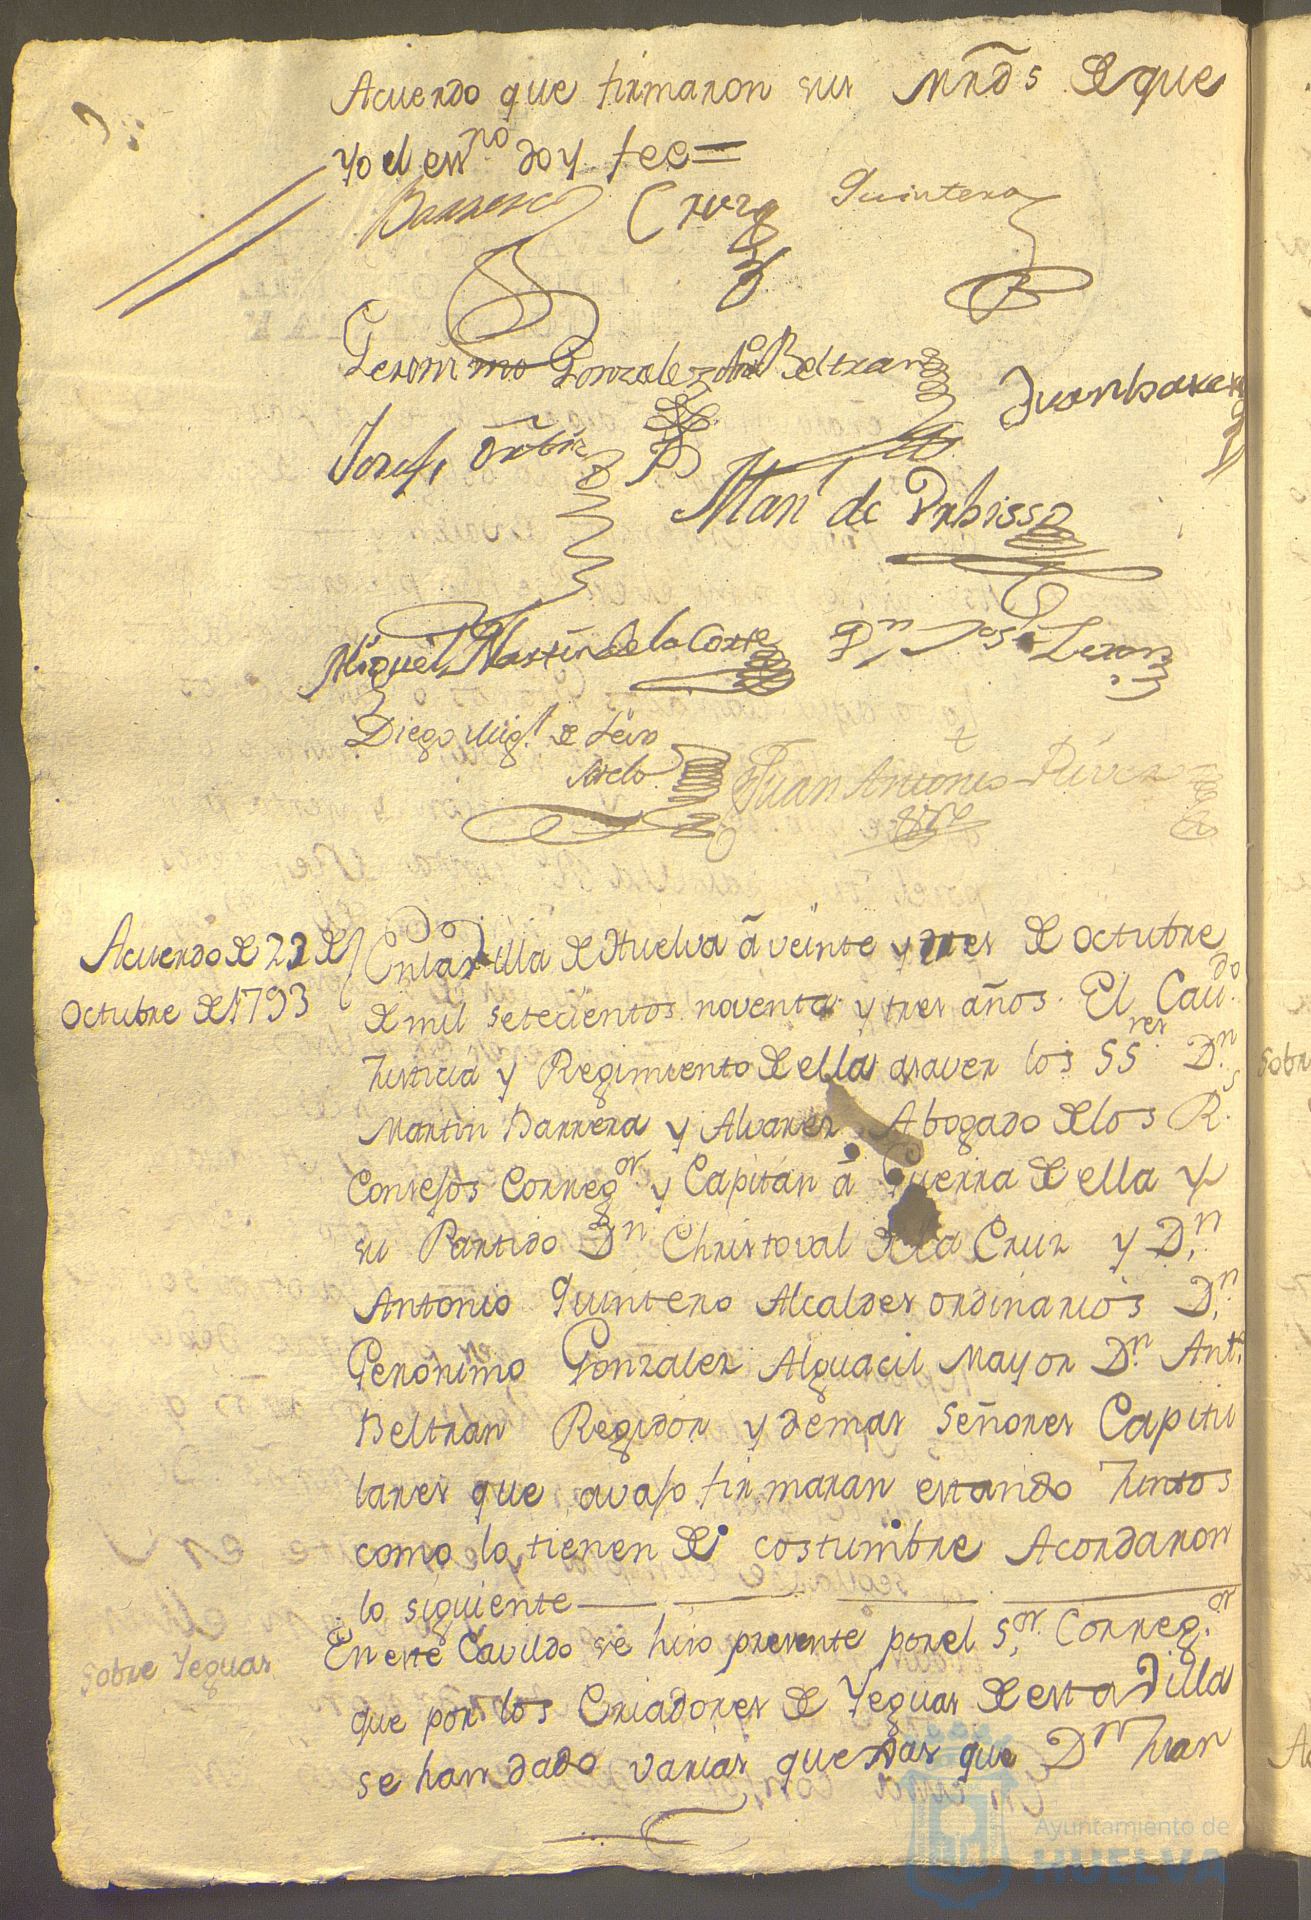 Acuerdo que firmaron sus Mrds. de que
yo el essno. doy fee =
Barrera Cruz Quintero
Geronimo Gonzalez Anto Beltran Juan
Josef Ortiz
Man de Urbisso
Miguel Martin de la Corte Dn Jos
Diego Migl. de
Melo Juan Antonio
Acuerdo de 23 de
Octubre de 1793
En la Villa de Huelva á veinte y tres de octubre
de mil setecientos noventa y tres años. El Cavdo.
Justicia y Regimiento de ella asaver los SSres Dn.
Martin Barrera y Alvarez Abogado de los Rs.
Consejos Corregor. y Capitan á Guerra de ella y
su Partido Dn Christoval de la Cruz y Dn.
Antonio Quintero Alcaldes ordinarios Dn.
Geronimo Gonzalez Alguacil Mayor Dn. Anto.
Beltran Regidor y demas Señores Capitu
lares que avajo firmaran estando Juntos
como lo tienen de costumbre Acordaron
lo siguiente
Sobre Yeguas
En este Cavildo se hizo presente por el Sor. Corregor.
que por los Criadores de Yeguas de esta Villa
se han dado varias quexas que Dn Juan
Ayuntamiento de
HUELVA